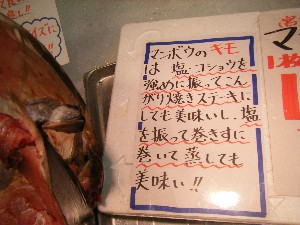 マンボウのキモ
は塩コショウを
強めに振ってこん
がり焼きステーキに
しても美味いし、塩
を振って巻きすに
巻いて蒸しても
美味い!!
マ
1枚